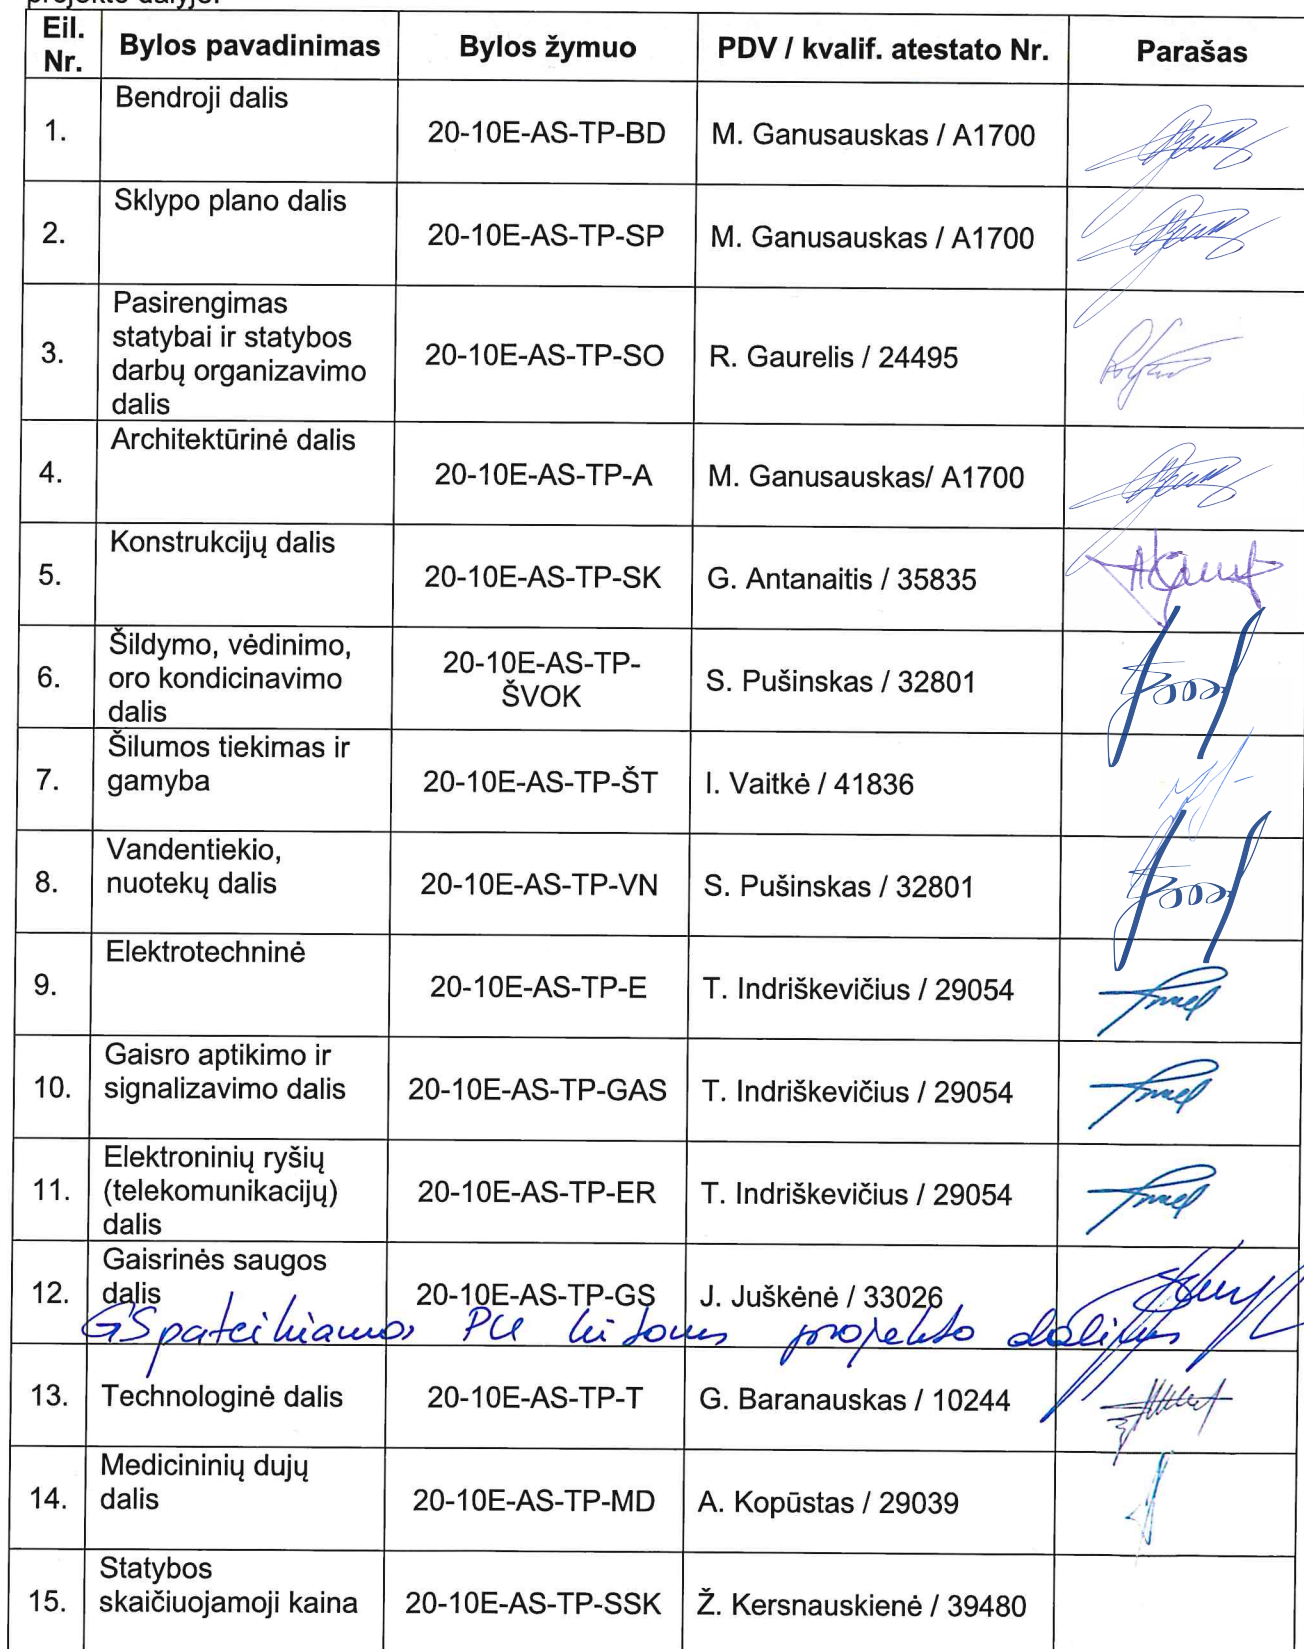 projekto dalyje.
Eil. Nr. Bylos pavadinimas Bylos žymuo PDV / kvalif. atestato Nr. Parašas
1. Bendroji dalis 20-10E-AS-TP-BD M. Ganusauskas / A1700
2. Sklypo plano dalis 20-10E-AS-TP-SP M. Ganusauskas / A1700
3. Pasirengimas
statybai ir statybos
darbų organizavimo
dalis 20-10E-AS-TP-SO R. Gaurelis / 24495
4. Architektūrinė dalis 20-10E-AS-TP-A M. Ganusauskas/ A1700
5. Konstrukcijų dalis 20-10E-AS-TP-SK G. Antanaitis / 35835
6. Šildymo, vėdinimo,
oro kondicinavimo
dalis 20-10E-AS-TP-
ŠVOK S. Pušinskas / 32801
7. Šilumos tiekimas ir
gamyba 20-10E-AS-TP-ŠT I. Vaitkė / 41836
8. Vandentiekio,
nuotekų dalis 20-10E-AS-TP-VN S. Pušinskas / 32801
9. Elektrotechninė 20-10E-AS-TP-E T. Indriškevičius / 29054
10. Gaisro aptikimo ir
signalizavimo dalis 20-10E-AS-TP-GAS T. Indriškevičius / 29054
11. Elektroninių ryšių
(telekomunikacijų)
dalis 20-10E-AS-TP-ER T. Indriškevičius / 29054
12. Gaisrinės saugos
dalis 20-10E-AS-TP-GS J. Juškėnė / 33026
GS projekto dalims
13. Technologinė dalis 20-10E-AS-TP-T G. Baranauskas / 10244
14. Medicininių dujų
dalis 20-10E-AS-TP-MD A. Kopūstas / 29039
15. Statybos
skaičiuojamoji kaina 20-10E-AS-TP-SSK Ž. Kersnauskienė / 39480